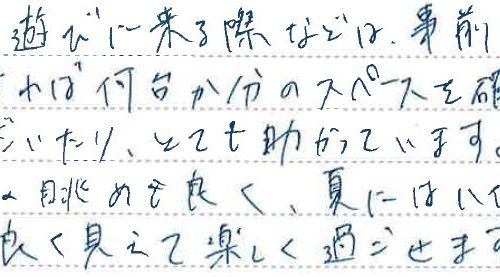 遊びに来る際などは、事前
れば何台か分のスペースを確
だいたり、とても助かっています。
眺めも良く、夏にはハイ
良く見えて楽しく過ごせます